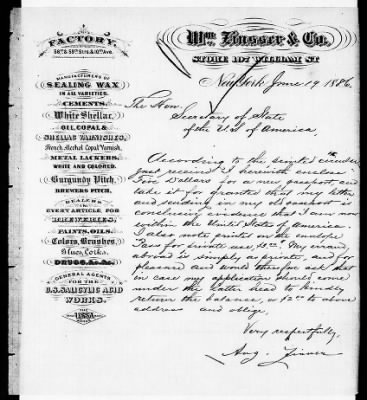 FACTORY
58th & 59th Strs. & 10th Ave.
MANUFACTURERS OF
SEALING WAX
IN ALL VARIETIES.
CEMENTS,
White Shellac,
OIL, COPAL &
SHELLAC VARNISHES,
French Alcohol Copal Varnish,
METAL LACKERS,
WHITE AND COLORED.
Burgundy Pitch,
BREWERS PITCH,
DEALERS
IN
EVERY ARTICLE, FOR
BREWERIES,
PAINTS, OILS,
Colors, Brushes,
Glues, Corks,
DRUGS, &c.
GENERAL AGENTS
FOR THE
U.S. SALICYLIC ACID
WORKS.
Wm. Zinsser & Co.
STORE 197 WILLIAM ST
New York June 19 1886.
The Hon.
Secretary of State
of the U.S. of America.
According to the scripted circular
just received I herewith enclose
Dollars for a new passport, and
take it for granted that my letter
and sending in my old passport is
conclusive evidence that I am now
within the United States of America.
I also note printed on the enclose
for private use, My errand
abroad is simply as private, and for
pleasure and would therefore ask that
in case my application should come
under the latter head to kindly
return the balance, to above
address and oblige.
Very respectfully,
Aug. Zinsser